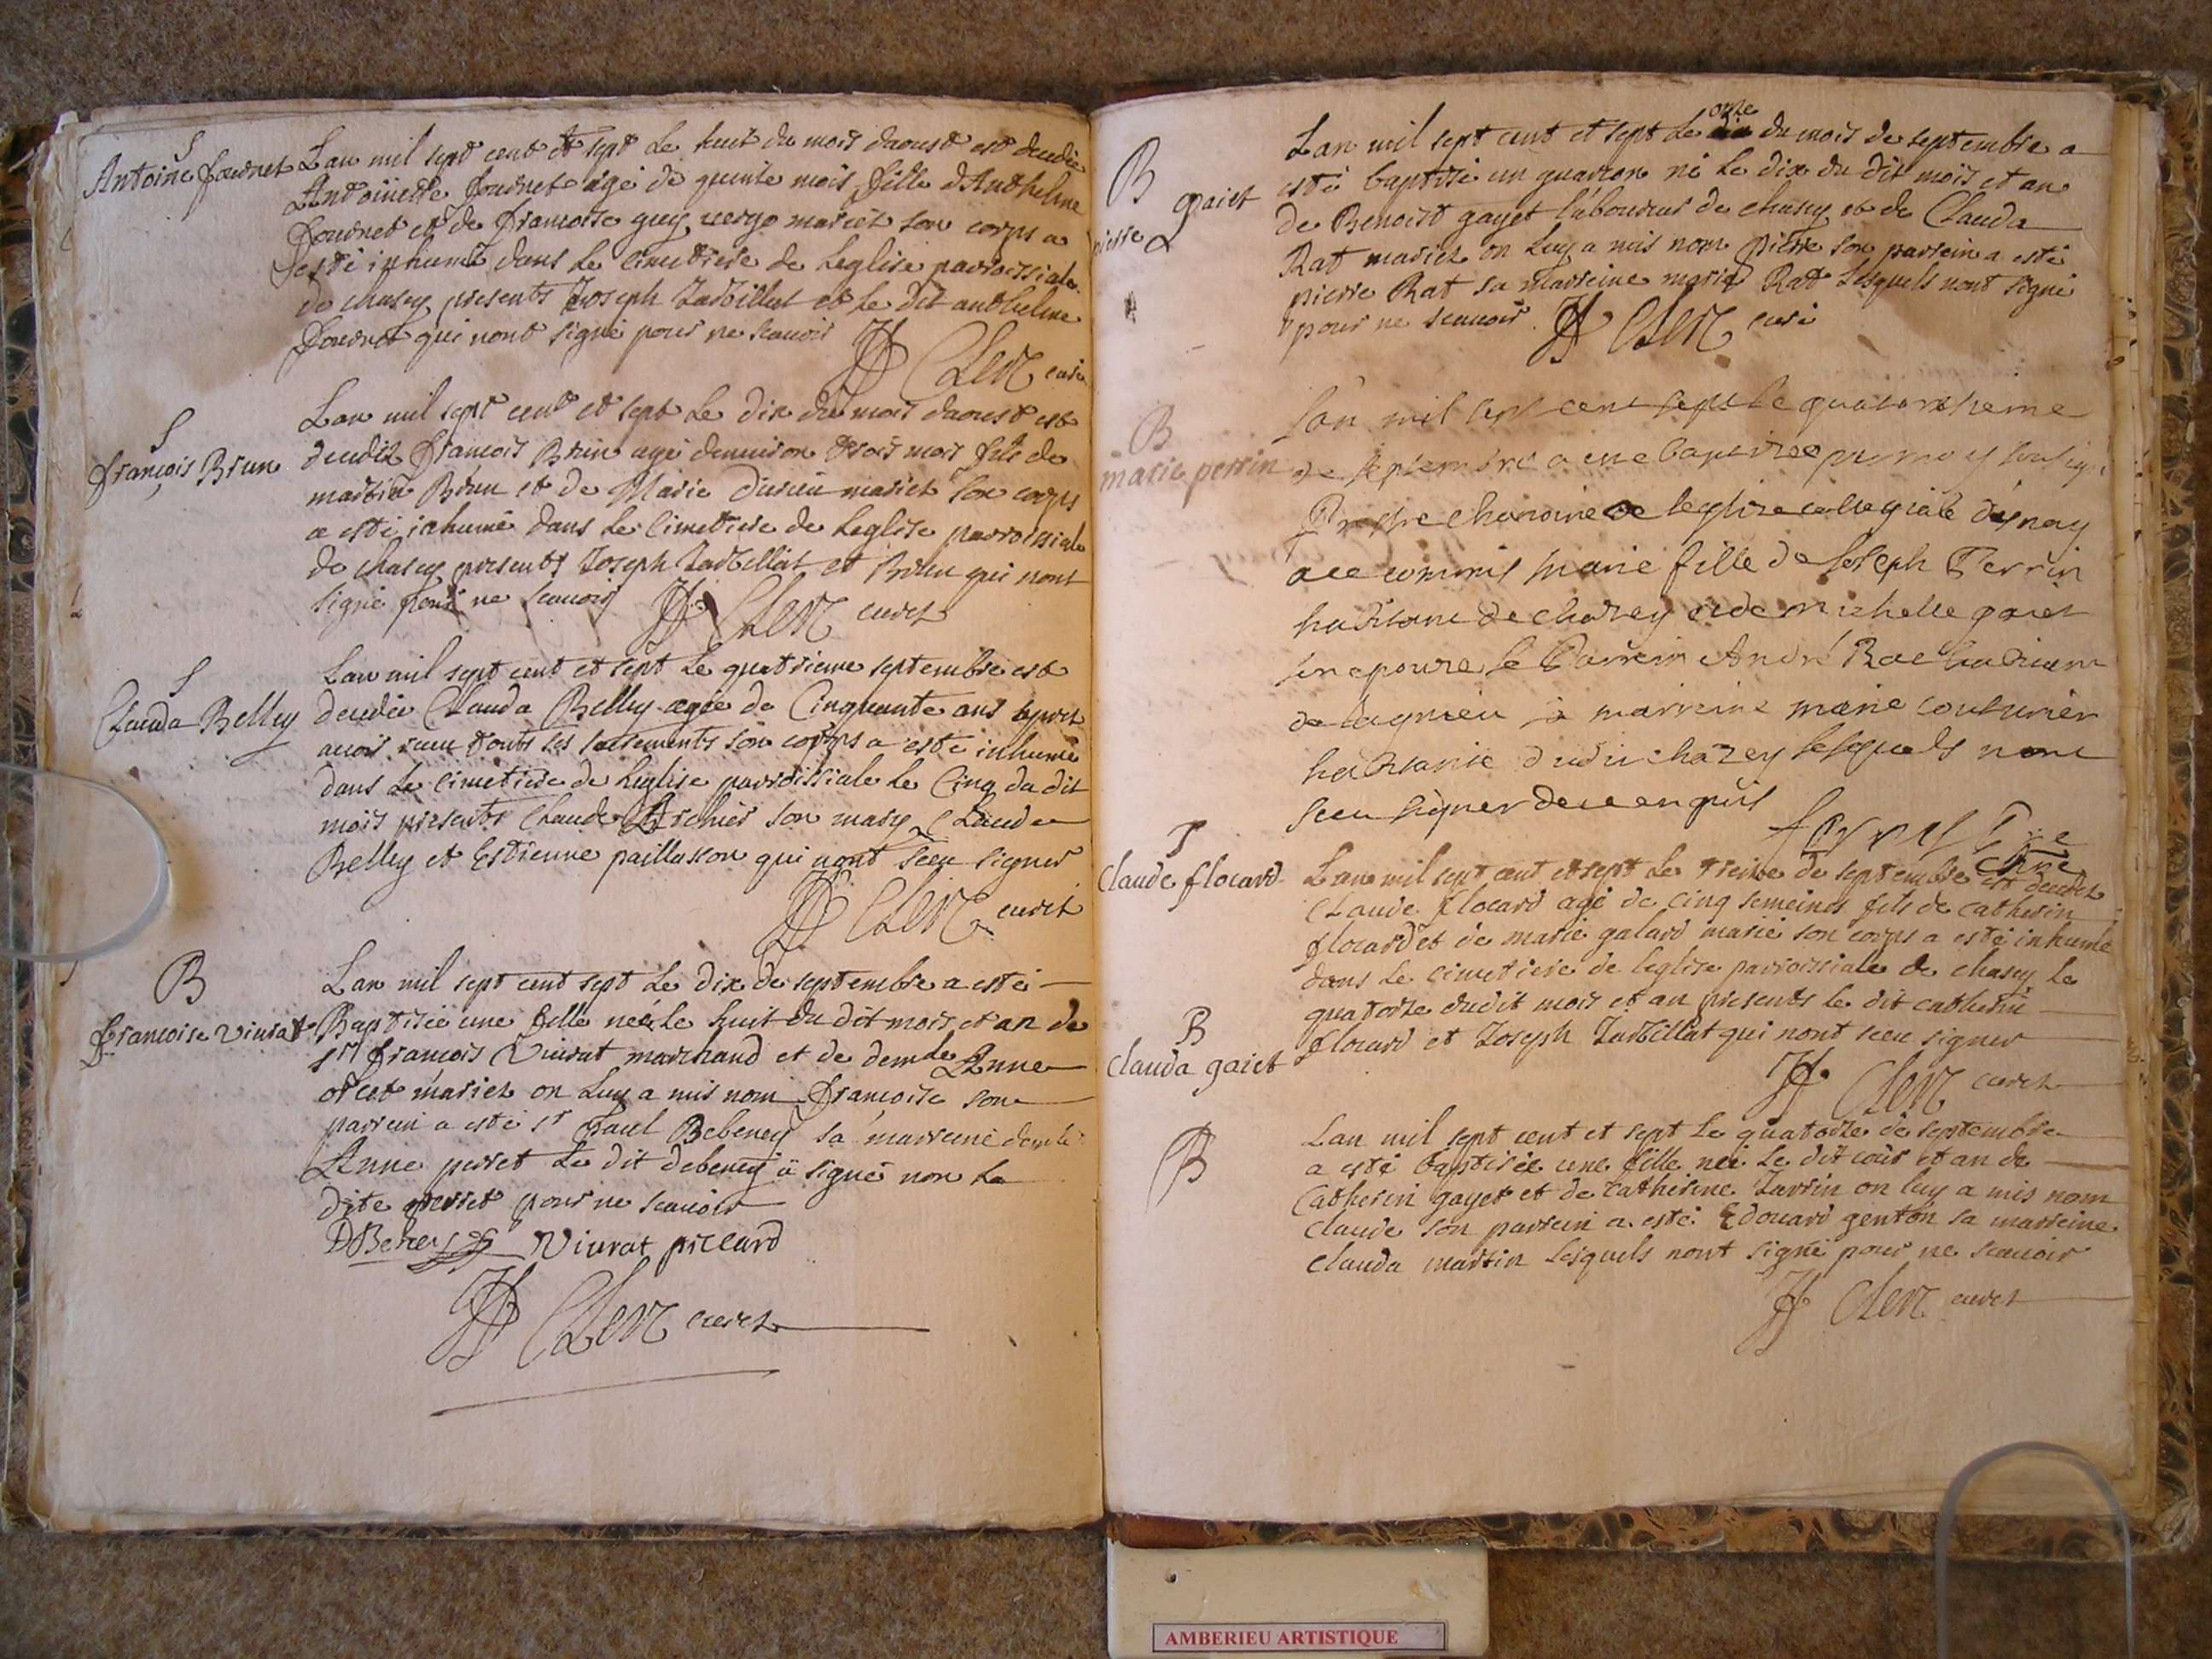 S
Antoine fournet
Lan mil sept cent et sept le huit du mois daoust est decedée
Antoinette fournet agé de quinte mois fille d'Anthelme
fournet et de francoise guy mariet son corps a
esté inhumé dans le cimetiere de leglise parroissiale
de chasey presents Joseph Tarbillat et le dit anthelme
fournet qui nont signé pour ne scauoir
Clerc curé
S
françois Brun
Lan mil sept cent et sept le dix du mois daoust est
decedez françois Brun agé denuiron trois mois fils de
martin Brun et de Marie mariet son corps
a esté inhumé dans le cimetiere de leglise parroissiale
de chasey presents Joseph Tarbillat et Brun qui nont
signé pour ne scauoir
Clerc curez
S
Clauda Belley
Lan mil sept cent et sept le quatrieme septembre est
decedée Clauda Belley agée de Cinquante ans apres
auoir receu touts ses sacrements son corps a esté inhumé
dans le cimetiere de leglise parroissiale le Cinq du dit
mois presents Claude son mary Claude
Belley et Estienne paillasson qui nont sceu signer
Clerc curez
B
françoise Viurat
Lan mil sept cent sept le dix de septembre a esté
Baptisée une fille neé le huit du dit mois et an de
sr françois Viurat marchand et de demle Anne
orcet mariez on luy a mis nom françoise son
parrein a esté sr paul Debeney sa marreine demle
Anne perret le dit debeney a signé non la
dite perret pour ne scauoir
DBeney Viurat piccard
Clerc curez
B
pierre gaiet
Lan mil sept cent et sept le onze du mois de septembre a
esté baptisé un guarcon né le dix du dit mois et an
de Benoist gayet laboureur de chasey et de Clauda
Rat mariez on luy a mis nom pierre son parrein a esté
pierre Rat sa marreine marie Rat lesquels nont signé
pour ne scauoir
Clerc curé
B
marie perrin
Lan mil sept cent sept le quatorzieme
de septembre a esté baptisée par moy soussigné
Prestre chanoine de leglise collegiale
a ce commis marie fille de Joseph Perrin
habitant de chazey et de michelle gaiet
son epouze le Parrein André Rat habitant
de lagnieu la marreine marie couturier
habitante dudit chazey lesquels nont
sceu signer de ce enquis
S
Claude flocard
Lan mil sept cent et sept le treize de septembre est decedez
Claude flocard agé de cinq semeines fils de catherin
flocard et de marie galard marié son corps a esté inhumé
dans le cimetiere de leglise parroissiale de chasey le
quatorze dudit mois et an presents le dit catherin
flocard et Joseph Tarbillat qui nont sceu signer
Clerc curez
B
Clauda gaiet
B
Lan mil sept cent et sept le quatorze de septembre
a esté baptisée une fille neé le dit iour et an de
Catherin gayet et de catherine Tarrin on luy a mis nom
claude son parrein a esté Edouard genton sa marreine
clauda martin lesquels nont signé pour ne scauoir
Clerc curez
AMBERIEU ARTISTIQUE